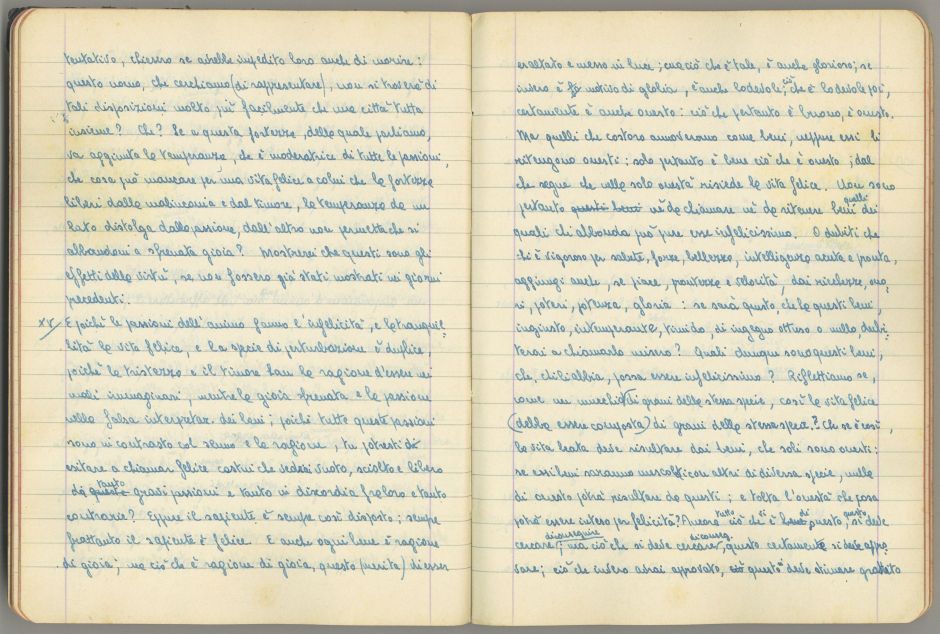 tentativo, chiesero se avrebbe impedito loro anche di morire:
questo uomo, che cerchiamo (di rappresentare), non si troverà di
tali disposizioni molto più facilmente che una città tutta
insieme? Che? Se a questa fortezza, della quale parliamo,
va aggiunta la temperanza, che è moderatrice di tutte le passioni,
che cosa può mancare per una vita felice a colui che la fortezza
liberi dalla malinconia e dal timore, la temperanza da un
lato distolga dalla passione, dall'altro non permetta che si
abbandoni a sfrenata gioia? mostrerei che questi sono gli
effetti della virtù, se non fossero già stati mostrati nei giorni
precedenti.
XV E poiché le passioni dell'animo fanno l'infelicità, e la tranquil
lità la vita felice, e la specie di perturbazione è duplice,
poiché la tristezza e il timore han la ragione d'essere nei
mali immaginari, mentre la gioia sfrenata e la passione
nella falsa interpretaz. dei beni; poiché tutte queste passioni
sono in contrasto col senno e la ragione, tu potresti
esitare a chiamar felice costui che vedesi vuoto, sciolto e libero
da queste tanto gravi passioni e tanto in discordia fra loro e tanto
contrarie? Eppure il sapiente è sempre così disposto; sempre
pertanto il sapiente è felice. E anche ogni bene è ragione
di gioia; ma ciò che è ragione di gioia, questo (merita) di esser
esaltato e messo in luce; ma ciò che è tale, è anche glorioso; se
invero è motivo di gloria, è anche lodevole; ciò che è lodevole poi,
certamente è anche onesto: ciò che pertanto è buono, è onesto.
Ma quelli che costoro annoverano come beni, neppure essi li
ritengono onesti: solo pertanto è bene ciò che è onesto; dal
che segue che nella sola onestà risiede la vita felice. Non sono
pertanto questi beni né da chiamare né da ritenere beni quelli dei
quali chi abbonda può pure esse infelicissimo. O dubiti che
chi è vigoroso per salute, forze, bellezza, intelligenza acuta e pronta,
aggiungi anche, se piace, prontezza e velocità, dai ricchezze, ono
ri, poteri, potenza, gloria: se sarà questo, che ha questi beni,
ingiusto, intemperante, timido, di ingegno ottuso o nullo, dubi
terai a chiamarlo misero? Quali dunque sono questi beni,
che, chi li abbia, possa essere infelicissimo? Riflettiamo se,
come un mucchio di grani della stessa specie, così la vita felice
(debba essere composta) di grani della stessa specie? Che se è così,
la vita beata deve risultare dai beni, che soli sono onesti:
se essi beni saranno mescolati con altri di diversa specie, nulla
di onesto potrà risultare da questi; e tolta l'onestà che cosa
potrà essere inteso per felicità? Ancora tutto ciò che vi è di questo, questo si deve
cercare conseguire; ma ciò che si deve cercare conseg., questo certamente si deve appro
vare; ciò che invero assai approvato, questo deve stimare gradito